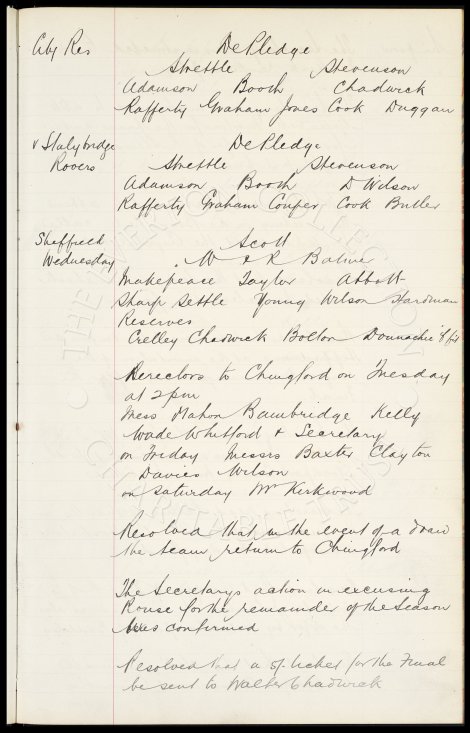 City Res
DePledge
Strettle Stevenson
Adamson Booth Chadwick
Rafferty Graham Jones Cook Duggan
v Stalybridge
Rovers
DePledge
Strettle Stevenson
Adamson Booth D Wilson
Rafferty Graham Couper Cook Butler
Sheffield
Wednesday
Scott
W & R Balmer
Makepeace Taylor Abbott
Sharp Settle Young Wilson Hardman
Reserves
Crelley Chadwick Bolton Donnachie if fit
Directors to Chingford on Tuesday
at 2pm
Mess Mahon Bainbridge Kelly
Wade Whitford & Secretary
on Friday Messrs Baxter Clayton
Davies Wilson
on Saturday Mr Kirkwood
Resolved that in the event of a draw
the team return to Chingford
The Secretarys action in excusing
Rouse for the remainder of the Season
was confirmed
Resolved that a 5/- ticket for the Final
be sent to Walter Chadwick
THE EVERTON COLLECTION
CHARITABLE TRUST